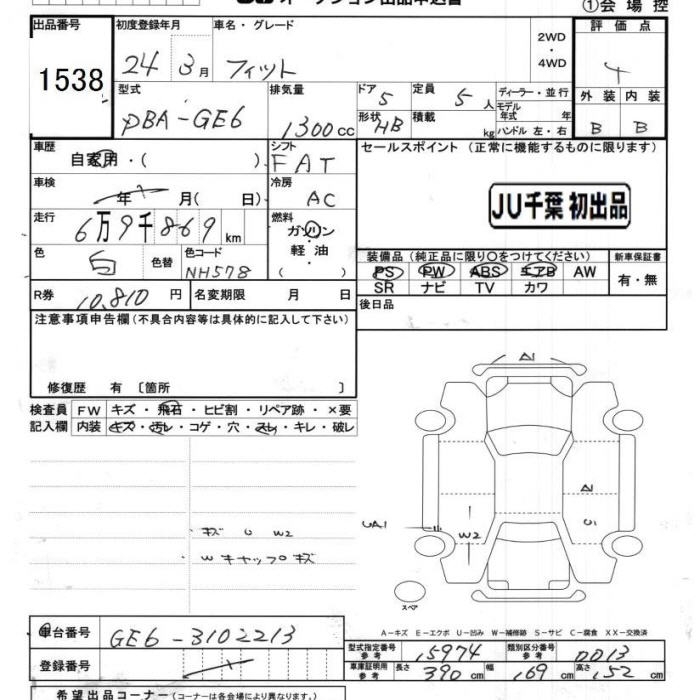 ①会場控
出品番号 初度登録年月 車名・グレード 評価点
1538 24 3月 フィット 2WD・4WD 4
型式 排気量 ドア 5 定員 5人 ディーラー・並行 外装 内装
DBA-GE6 1300cc 形状 HB 積載 kg モデル年式 年 ハンドル 左・右 B B
車歴 自家用・( ) シフト FAT セールスポイント (正常に機能するものに限ります)
車検 年 月(日) 冷房 AC
JU千葉 初出品
走行 6万9千869km 燃料 ガソリン
軽油
( )
色 白 色替 色コード NH578
装備品 (純正品に限り○をつけてください) 新車保証書
PS PW ABS エアB AW 有・無
SR ナビ TV カワ
R券 10,810円 名変期限 月 日 後日品
注意事項申告欄 (不具合内容等は具体的に記入して下さい)
修復歴 有 〔箇所 〕
検査員 FW キズ・飛石・ヒビ割・リペア跡・×要
記入欄 内装 キズ・汚レ・コゲ・穴・スレ・キレ・破レ
A1
A1
UA1
W2
U1
キズ U W2
W キャップキズ
スペア
A-キズ E-エクボ U-凹み W-補修跡 S-サビ C-腐食 XX-交換済
車台番号 GE6-3102213
型式指定番号 参考 15974 類別区分番号 参考 0013
登録番号
車庫証明用 参考 長さ 390cm 幅 169cm 高さ 152cm
希望出品コーナー (コーナーは各会場により異なります)